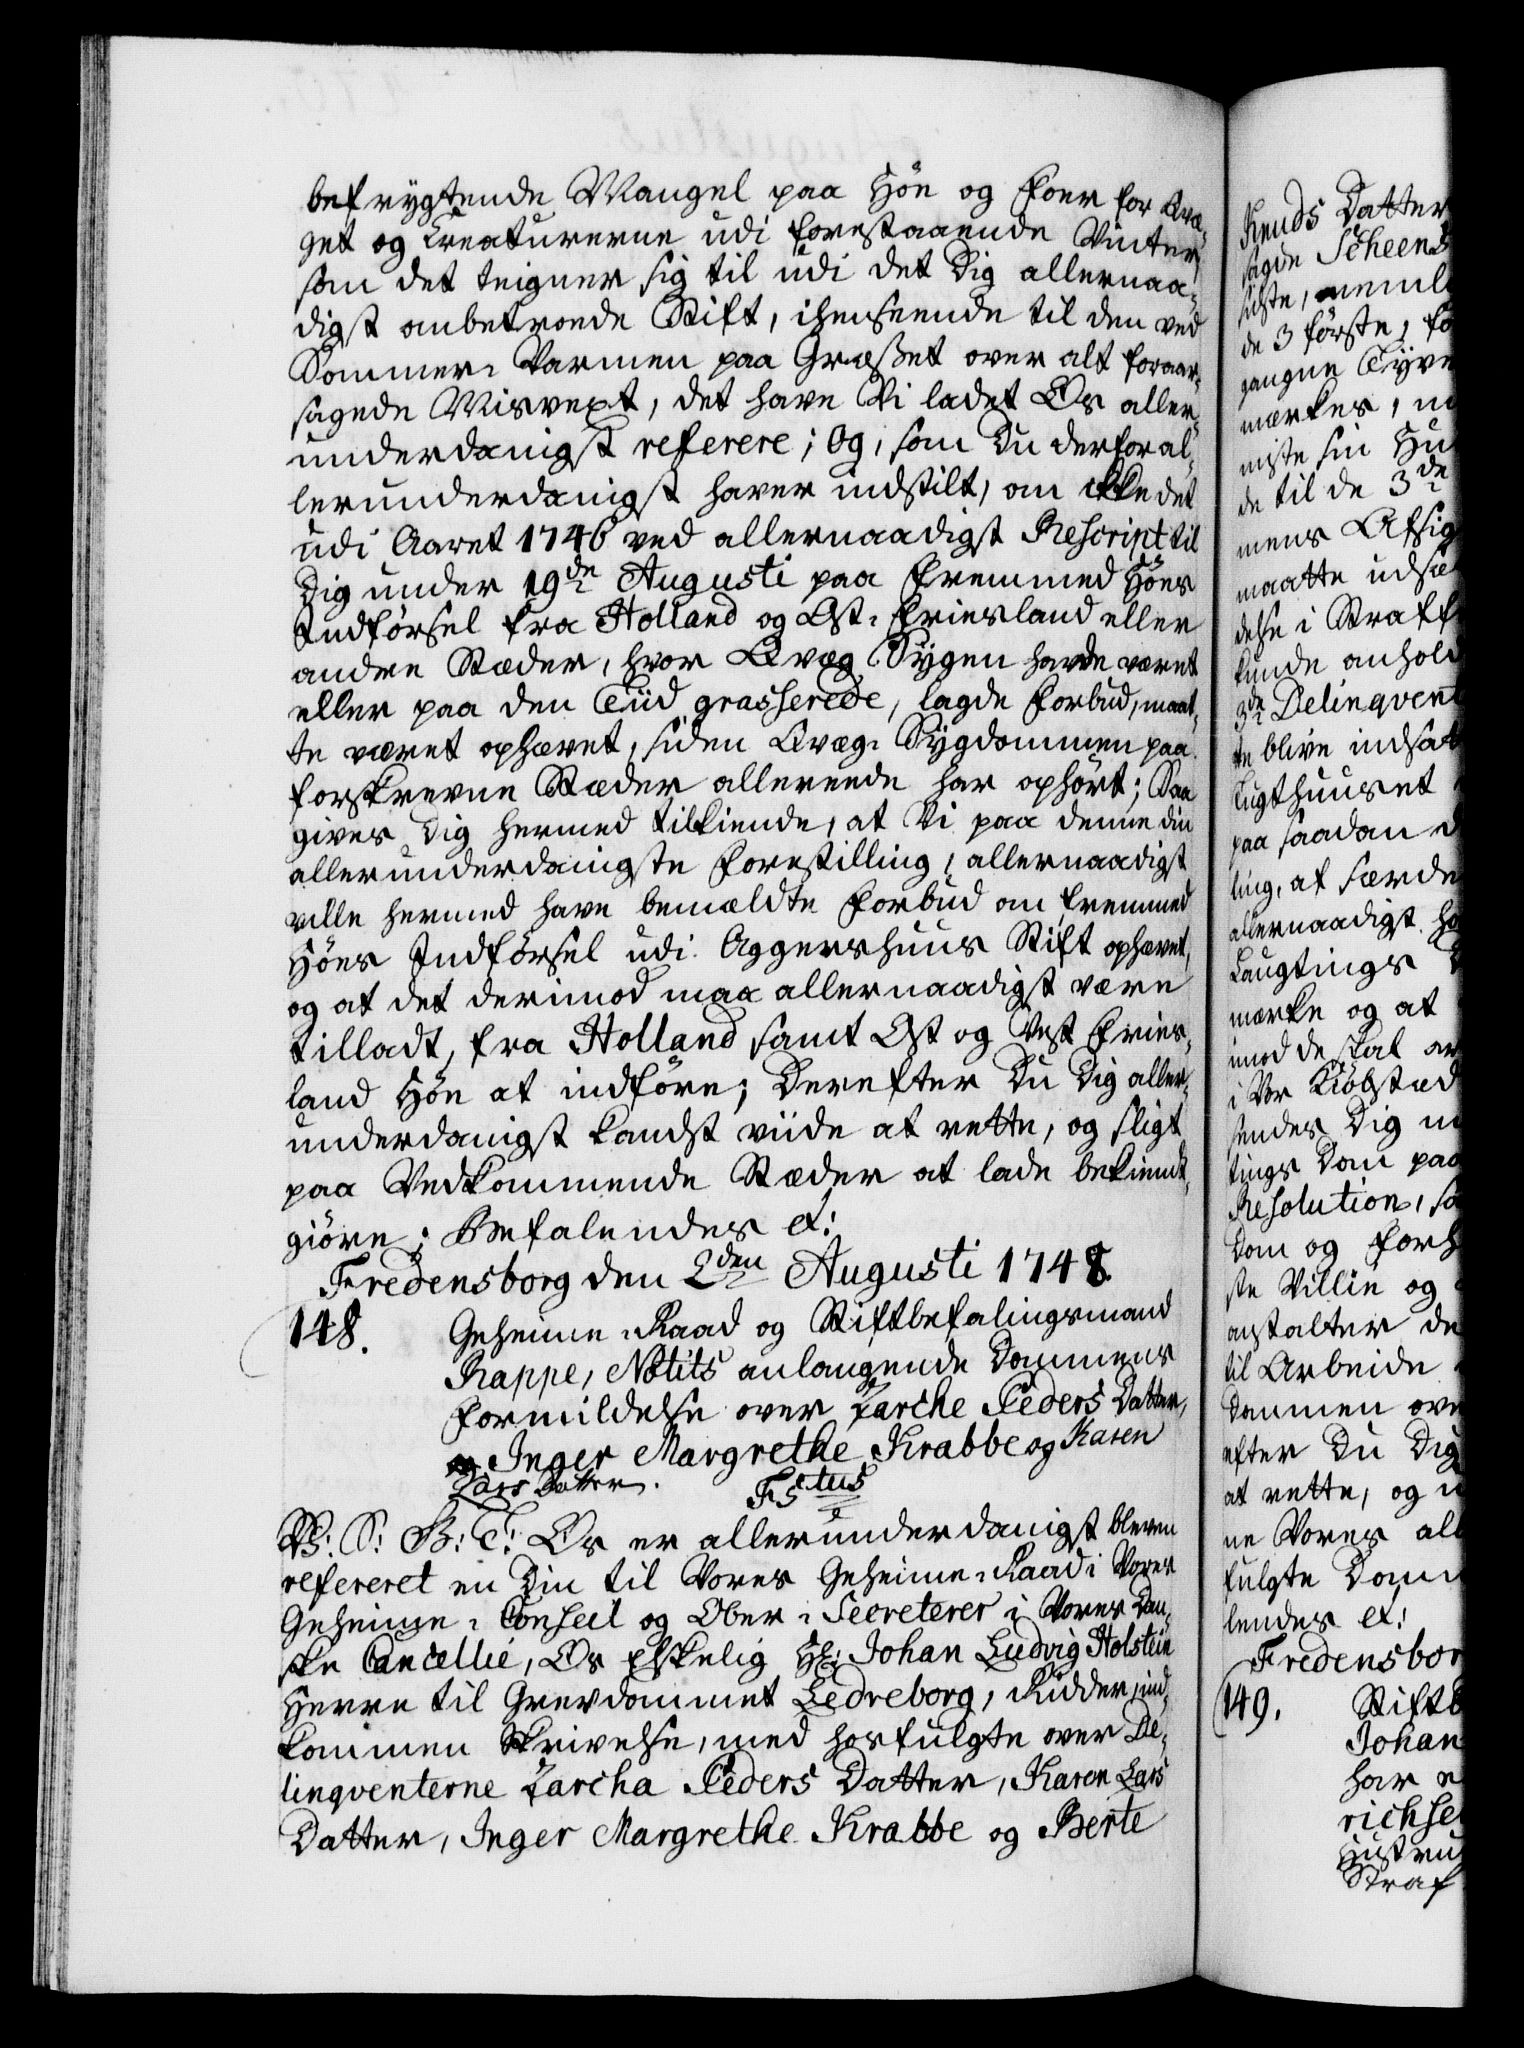 befrygtende Mangel paa Höe og Foer for Qvæ-
get og Creaturerne udi forestaaende Vinter,
som det teigner sig til udi det Dig allernaa-
digst anbetroede Stift, ihenseende til den ved
Sommer-Varmen paa Græsset over alt foraar-
sagede Misvext, det have Vi ladet Os aller-
underdanigst referere; Og, som Du derfor al-
lerunderdanigst haver indstilt, om ikke det
udi Aaret 1746 ved allernaadigst Rescript til
Dig under 19de Augusti paa fremmed Höes
Indförsel fra Holland og Ost-Friesland eller
andre Stæder, hvor Qvæg Sygen havde været
eller paa den Tiid grasserede, lagde Forbud, maat-
te været ophævet, siden Qvæg-Sygdommen paa
forskrevne Stæder allereede har ophört; Saa
gives Dig hermed tilkiende, at Vi paa denne din
allerunderdanigste Forestilling, allernaadigst
ville hermed have bemældte Forbud om fremmed
Höes Indförsel udi Aggershuus Stift ophævet,
og at det derimod maa allernaadigst være
tilladt, fra Holland samt Ost og Vest Fries-
land Höe at indföre; Derefter Du Dig aller-
underdanigst kandst viide at rette, og sligt
paa Vedkommende Stæder at lade bekiendt-
giöre; Befalendes et:
Fredensborg den 2den Augusti 1748.
148. Geheime-Raad og Stiftbefalingsmand
Rappe, Notits anlangende Dommens
Formildelse over Zarche Peders Datter,
Inger Margrethe Krabbe og Karen
Lars Datter. Fstus
V: S: G: T: Os er allerunderdanigst bleven
refereret en Din til Vores Geheime-Raad i Vores
Geheime-Conseil og Ober-Secreterer i Vores Dan-
ske Cancellie, Os Elskelig Hr: Johan Ludvig Holstein
Herre til Grevdommet Ledreborg, Ridder, ind-
kommen Skrivelse, med hosfulgte over De-
linqventerne Zarcha Peders Datter, Karen Lars
Datter, Inger Margrethe Krabbe og Berte
Knuds Datter
sagde Scheens
sidste, neml
de 3 förste, fo
gangne Tyve
mærkes, m
miste sin Hu
de til de 3de
mens Afsig
maatte udsæ
delse i Straff
kunde anhold
3de Delinqvent
te blive indsat
tugthuuset
paa saadan
ling, at færde
allernaadigst ha
Laugtings D
mærke og at
imod de skal ar
i Vor Kiöbstæd
sendes Dig m
tings Dom paa
Resolution, sa
Dom og Forh
ste Villie og
anstalter de
til Arbeide
Dommen ove
efter Du Dig
at rette, og
ne Vores all
fulgte Dom
lendes et:
Fredensbor
149. Stiftb
Johan
har e
richse
Hustru
Straf